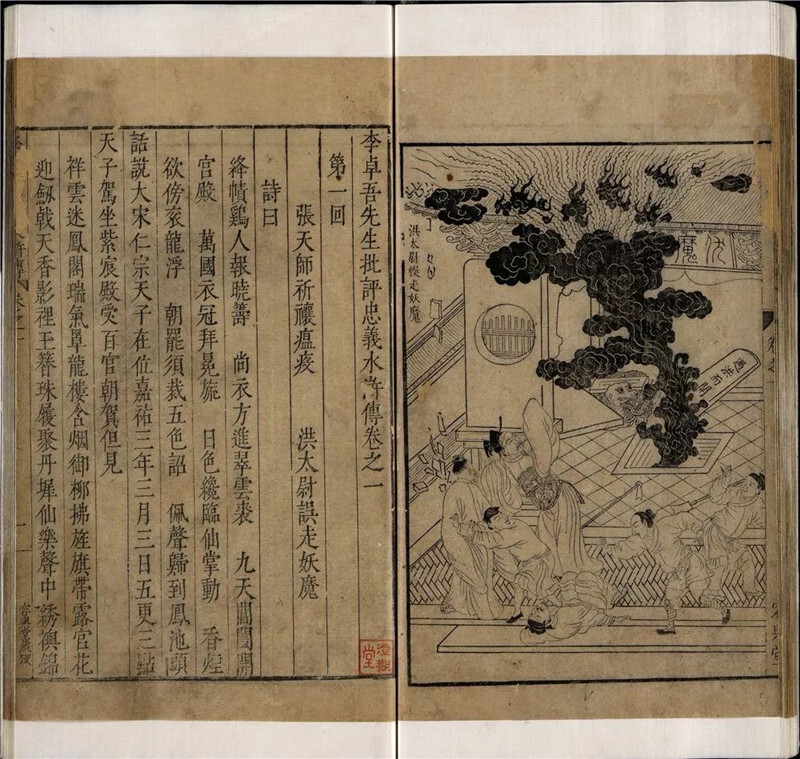 伏魔
洪太尉悞走妖魔
遇洪而開
容與堂
李卓吾先生批評忠義水滸傳卷之一
第一回
張天師祈禳瘟疫　洪太尉誤走妖魔
詩曰
絳幘鷄人報曉籌　尚衣方進翠雲裘　九天閶闔開
宮殿　萬國衣冠拜冕旒　日色纔臨仙掌動　香煙
欲傍衮龍浮　朝罷須裁五色詔　佩聲歸到鳳池頭
話說大宋仁宗天子在位嘉祐三年三月三日五更三點
天子駕坐紫宸殿受百官朝賀但見
祥雲迷鳳閣瑞氣罩龍樓含烟御柳拂旌旗帶露宮花
迎劔戟天香影裡玉簪珠履聚丹墀仙樂聲中綉襖錦